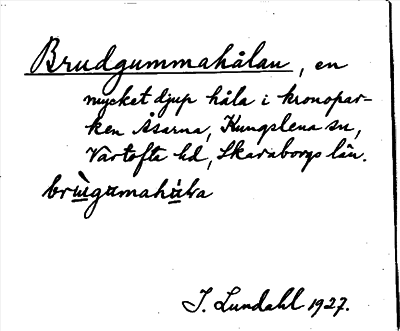 Brudgummahålan, en
mycket djup håla i kronopar-
ken Åsarna, Kungslena sn,
Vartofta hd, Skaraborgs län.
I. Lundahl 1927.